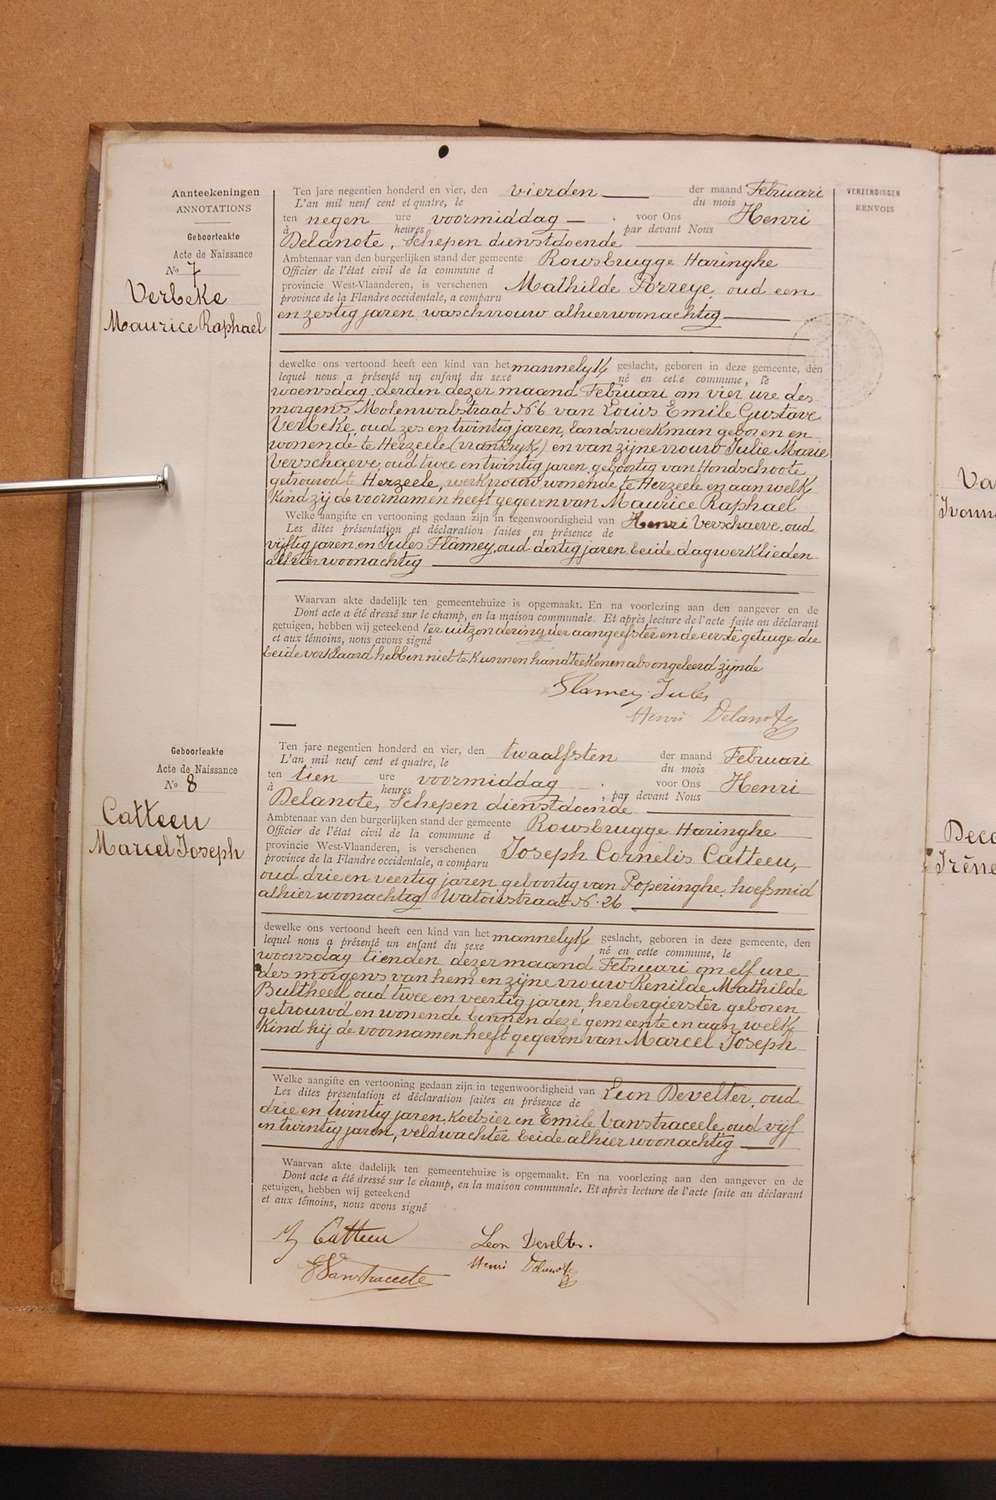 Aanteekeningen
ANNOTATIONS
Geboorteakte
Acte de Naissance
No 7
Verbeke
Maurice Raphael
Ten jare negentien honderd en vier, den vierden der maand Februari
L'an mil neuf cent et quatre, le du mois
ten negen ure voormiddag voor Ons Henri
à heures par devant Nous
Delanote, Schepen dienstdoende
Ambtenaar van den burgerlijken stand der gemeente Rousbrugge Haringhe
Officier de l'état civil de la commune d
provincie West-Vlaanderen, is verschenen Mathilde Porreye oud een
province de la Flandre occidentale, a comparu
en zestig jaren waschvrouw alhier woonachtig
dewelke ons vertoond heeft een kind van het mannelyk geslacht, geboren in deze gemeente, den
lequel nous a présenté un enfant du sexe né en cette commune, le
woensdag derden dezer maand Februari om vier ure des
morgens Molenwalstraat No 6 van Louis Emile Gustave
Verbeke, oud zes en twintig jaren, landswerkman geboren en
wonende te Herzeele (vrankryk) en van zijne vrouw Julie Marie
Verschaeve, oud twee en twintig jaren, geboortig van Hondschoote
getrouwd te Herzeele, werkvrouw wonende te Herzeele en aan welk
Kind zij de voornamen heeft gegeven van Maurice Raphael
Welke aangifte en vertooning gedaan zijn in tegenwoordigheid van Henri Verschaeve, oud
Les dites présentation et déclaration faites en présence de
vijftig jaren en Jules Flamey, oud dertig jaren beide dagwerklieden
alhier woonachtig
Waarvan akte dadelijk ten gemeentehuize is opgemaakt. En na voorlezing aan den aangever en de
Dont acte a été dressé sur le champ, en la maison communale. Et après lecture de l'acte faite au déclarant
getuigen, hebben wij geteekend ter uitzondering der aangeefster en de eerste getuige die
et aux témoins, nous avons signé
beide verklaard hebben niet te kunnen handteekenen als ongeleerd zijnde
Flamey Jules
Henri Delanote
Geboorteakte
Acte de Naissance
No 8
Catteeu
Marcel Joseph
Ten jare negentien honderd en vier, den twaalfsten der maand Februari
L'an mil neuf cent et quatre, le du mois
ten tien ure voormiddag voor Ons Henri
à heures , par devant Nous
Delanote, Schepen dienstdoende
Ambtenaar van den burgerlijken stand der gemeente Rousbrugge Haringhe
Officier de l'état civil de la commune d
provincie West-Vlaanderen, is verschenen Joseph Cornelis Catteeu,
province de la Flandre occidentale, a comparu
oud drie en veertig jaren geboortig van Poperinghe hoefsmid
alhier woonachtig Watoustraat No 26
dewelke ons vertoond heeft een kind van het mannelyk geslacht, geboren in deze gemeente, den
lequel nous a présenté un enfant du sexe né en cette commune, le
woensdag tienden dezer maand Februari om elf ure
des morgens van hem en zijne vrouw Renilde Mathilde
Bultheel, oud twee en veertig jaren, herbergierster geboren
getrouwd en wonende binnen deze gemeente en aan welk
Kind hij de voornamen heeft gegeven van Marcel Joseph
Welke aangifte en vertooning gedaan zijn in tegenwoordigheid van Leon Develter, oud
Les dites présentation et déclaration faites en présence de
drie en twintig jaren, Koetsier en Emile Vanstraceele, oud vijf
en twintig jaren, veldwachter beide alhier woonachtig
Waarvan akte dadelijk ten gemeentehuize is opgemaakt. En na voorlezing aan den aangever en de
Dont acte a été dressé sur le champ, en la maison communale. Et après lecture de l'acte faite au déclarant
getuigen, hebben wij geteekend
et aux témoins, nous avons signé
J Catteeu Leon Develter.
E Vanstraceele Henri Delanote
VERZENDINGEN
RENVOIS